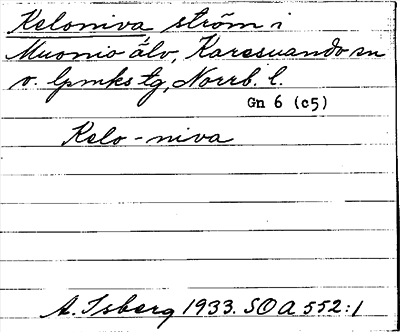 Keloniva ström i
Muonio älv, Karesuando sn
o. lpmks tg, Norrb. l.
Gn 6 (c5)
Kelo-niva
A. Isberg 1933. SOA 552:1